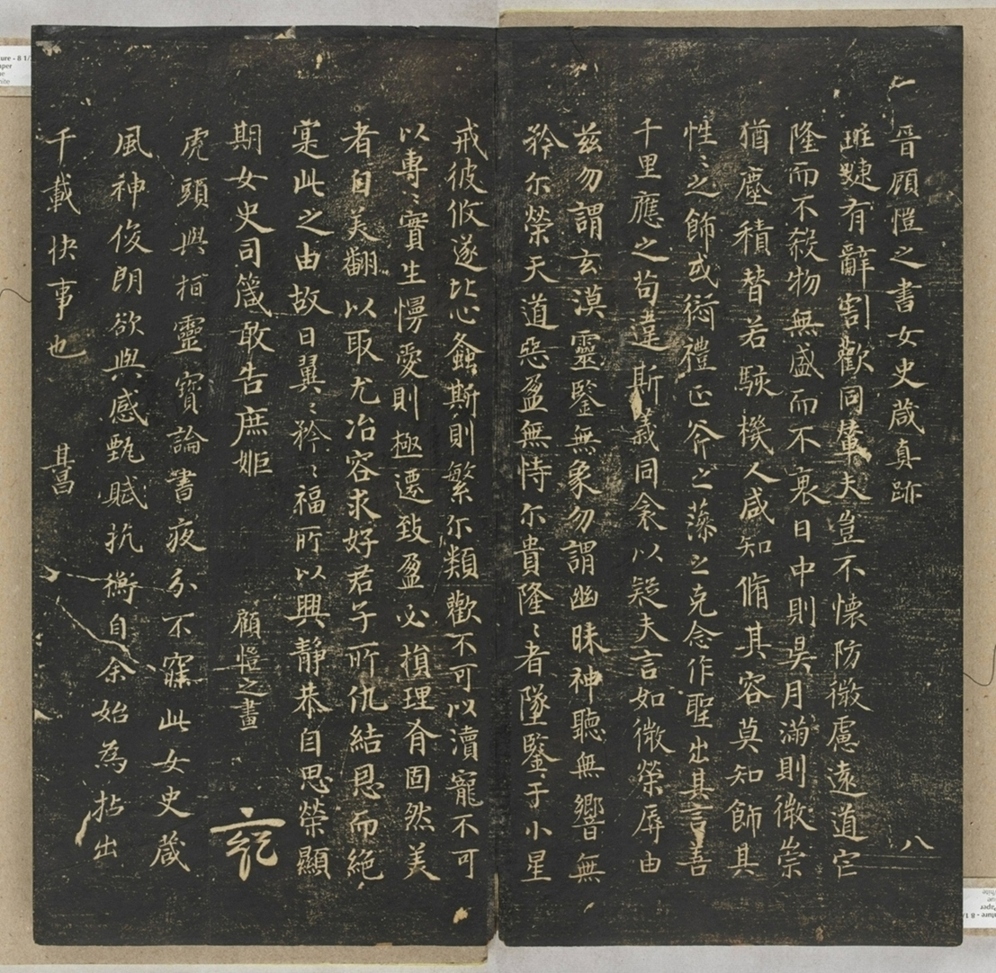 晉顧愷之書女史葴真跡
班婕有辭割歡同輦夫豈不懷防微慮遠道亡
八
隆而不殺物無盛而不衰日中則昃月滿則微崇
猶塵積替若駭機人咸知脩其容莫知飾其
性〻之飾或愆禮正斧之藻之克念作聖出其言善
千里應之苟違斯義同衾以疑夫言如微榮辱由
茲勿謂玄漠靈鑒無象勿謂幽昧神聽無響無
矜尓榮天道惡盈無恃尓貴隆〻者墜鑒于小星
戒彼攸遂比心螽斯則繁尓類歡不可以瀆寵不可
以專〻實生慢愛則極遷致盈必損理有固然美
者自美翩以取尤冶容求好君子所仇結恩而絕
寔此之由故曰翼〻矜〻福所以興靜恭自思榮顯
期女史司箴敢告庶姬
顧愷之畫
虎頭與桓靈寶論書夜分不寐此女史葴
風神俊朗欲與感甄賦抗衡自余始為拈出
千載快事也 其昌